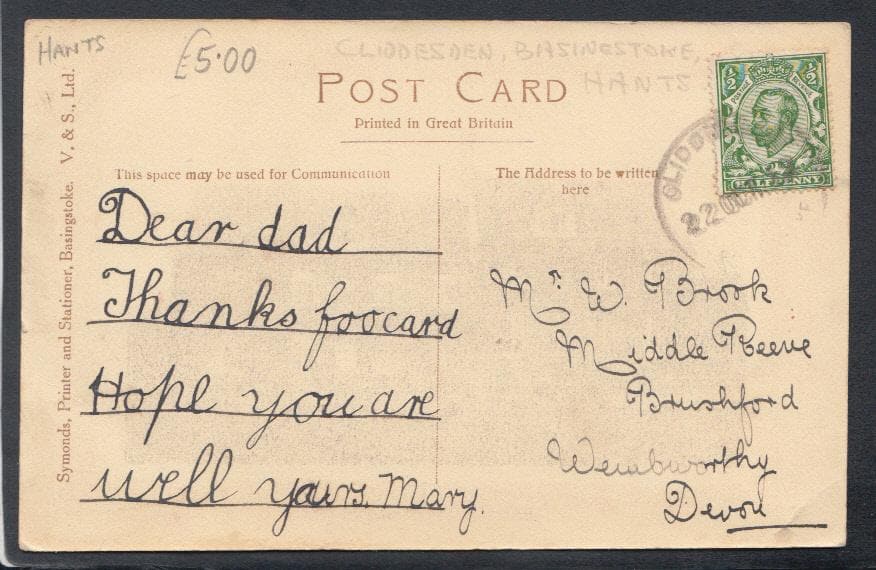 HANTS
£5.00
CLIDDESDEN, BASINGSTOKE,
HANTS
POST CARD
Printed in Great Britain
Symonds, Printer and Stationer, Basingstoke. V. & S., Ltd.
This space may be used for Communication
The Address to be written
here
½ ½
POSTAGE REVENUE
HALFPENNY
22 OC
Dear dad
Thanks foocard
Hope you are
well yours. Mary.
Mr. W. Brook
Middle Reeve
Brushford
Wembworthy
Devon